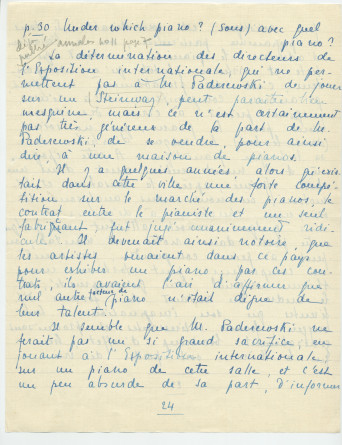 p. 50 Under which piano? (Sous) avec quel
piano?
La détermination des directeurs de
l'Exposition internationale, qui ne per-
mettent pas à M. Paderewski de jouer
sur un Steinway, peut paraître bien
mesquine mais ce n'est certainement
pas très généreux de la part de M.
Paderewski de se vendre, pour ainsi
dire à une maison de pianos.
Il y a quelques années, alors qu'exis-
tait dans cette ville une forte compé-
tition sur le marché des pianos, le
contrat entre le pianiste et un seul
fabriquant fut jugé unanimement ridi-
cule. Il devenait ainsi notoire, que
les artistes venaient dans ce pays
pour exhiber un piano, par ces con-
trats, ils avaient l'air d'affirmer que
nul autre facteur de piano n'était digne de
leur talent.
Il semble que M. Paderewski ne
ferait pas un si grand sacrifice en
jouant à l'Exposition internationale
sur un piano de cette salle, et c'est
un peu absurde de sa part, d'informer
24